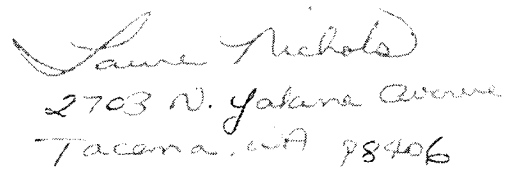 Laurie Nichols
2703 N. Yakima Avenue
Tacoma, WA 98406